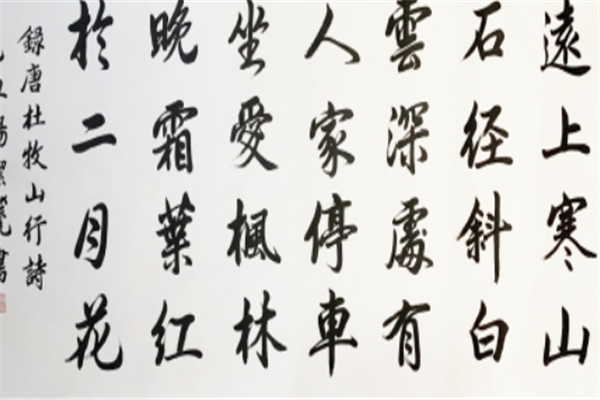 遠上寒山
石径斜白
雲深處有
人家停車
坐愛楓林
晚霜葉红
於二月花
録唐杜牧山行詩
書